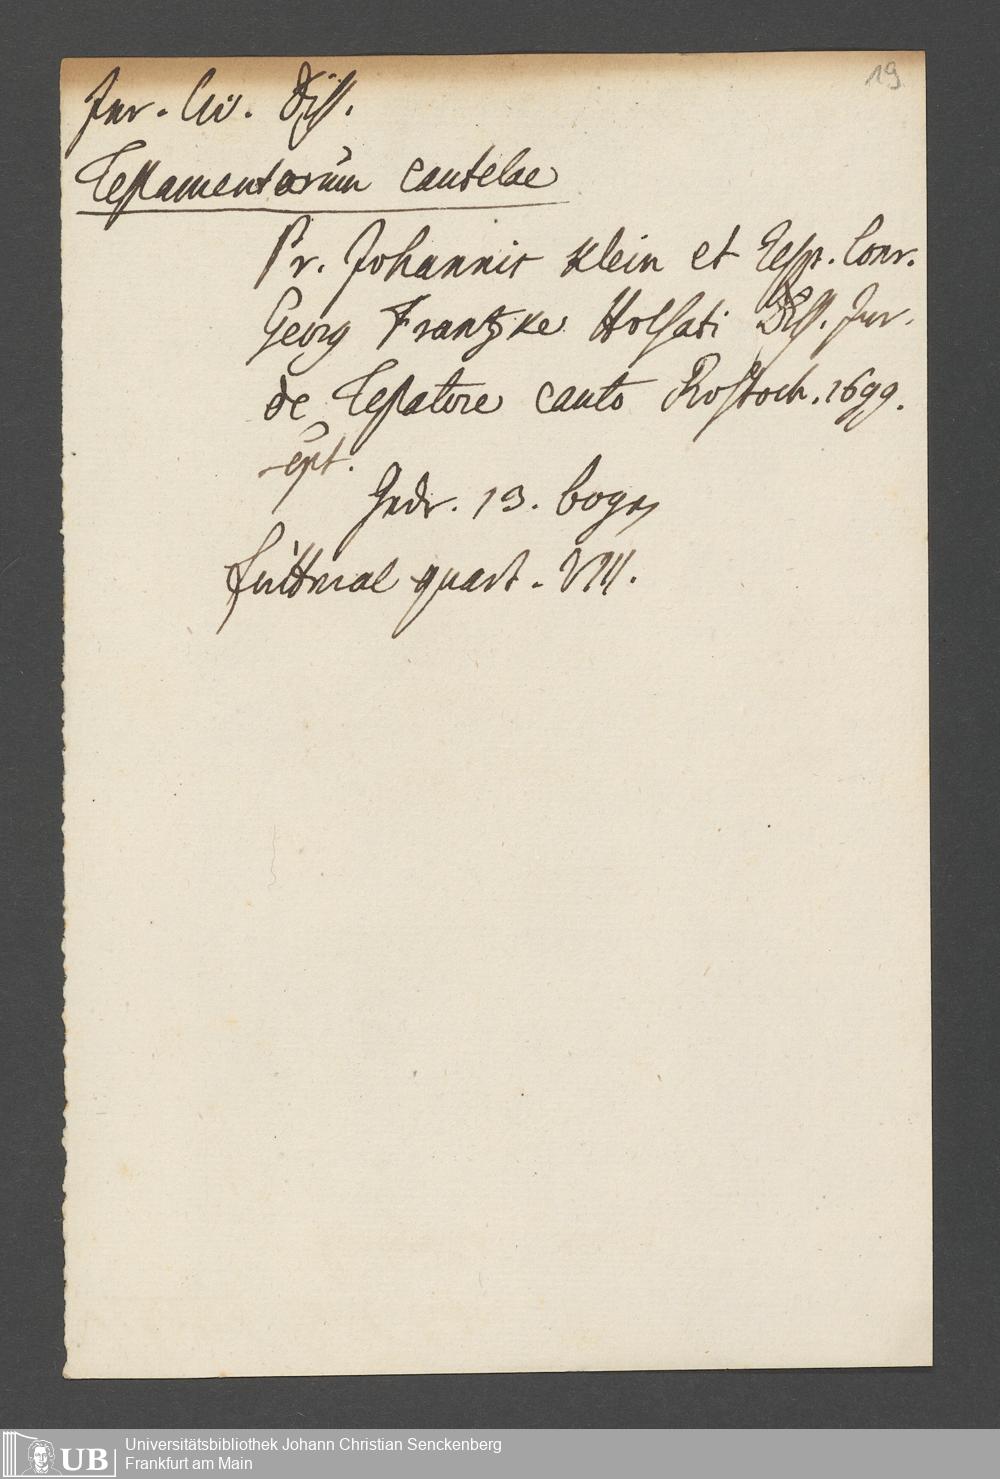 19
Jur. Civ. Diss.
Testamentorum cautelae
Pr. Johannis Klein et Resp. Conr.
Georg Frantzke Holsati Diss. Jur.
de Testatore cauto Rostoch. 1699.
sept.
Gedr. 13. bogen
quart. VIII.
UB
Universitätsbibliothek Johann Christian Senckenberg
Frankfurt am Main